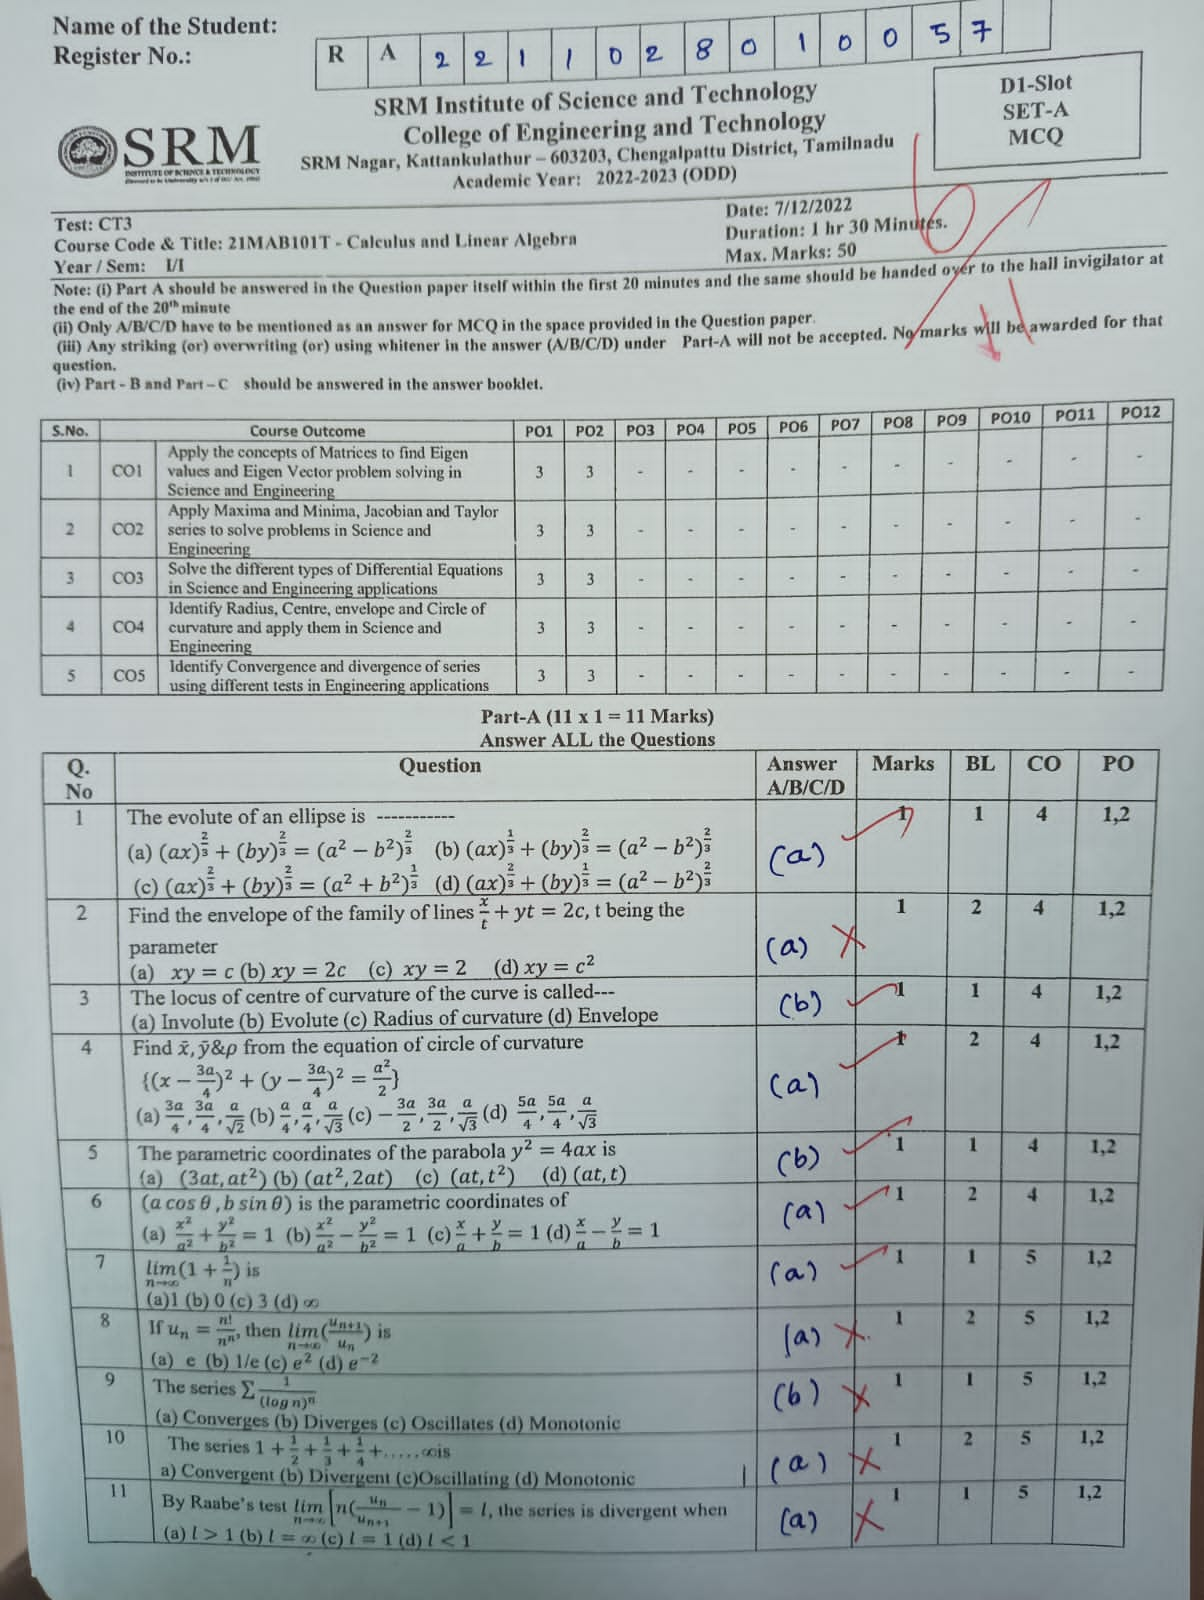 Name of the Student:
Register No.: R A 2 2 1 1 0 2 8 0 1 0 0 5 7
D1-Slot
SET-A
MCQ
SRM
INSTITUTE OF SCIENCE & TECHNOLOGY
SRM Institute of Science and Technology
College of Engineering and Technology
SRM Nagar, Kattankulathur – 603203, Chengalpattu District, Tamilnadu
Academic Year: 2022-2023 (ODD)
Test: CT3
Course Code & Title: 21MAB101T - Calculus and Linear Algebra
Year / Sem: I/I
Date: 7/12/2022
Duration: 1 hr 30 Minutes.
Max. Marks: 50
6
11
Note: (i) Part A should be answered in the Question paper itself within the first 20 minutes and the same should be handed over to the hall invigilator at
the end of the 20th minute
(ii) Only A/B/C/D have to be mentioned as an answer for MCQ in the space provided in the Question paper.
(iii) Any striking (or) overwriting (or) using whitener in the answer (A/B/C/D) under Part-A will not be accepted. No marks will be awarded for that
question.
(iv) Part - B and Part – C should be answered in the answer booklet.
S.No. Course Outcome PO1 PO2 PO3 PO4 PO5 PO6 PO7 PO8 PO9 PO10 PO11 PO12
1 CO1 Apply the concepts of Matrices to find Eigen
values and Eigen Vector problem solving in 3 3 - - - - - - - - - -
Science and Engineering
2 CO2 Apply Maxima and Minima, Jacobian and Taylor
series to solve problems in Science and 3 3 - - - - - - - - - -
Engineering
3 CO3 Solve the different types of Differential Equations
in Science and Engineering applications 3 3 - - - - - - - - - -
4 CO4 Identify Radius, Centre, envelope and Circle of
curvature and apply them in Science and 3 3 - - - - - - - - - -
Engineering
5 CO5 Identify Convergence and divergence of series
using different tests in Engineering applications 3 3 - - - - - - - - - -
Part-A (11 x 1 = 11 Marks)
Answer ALL the Questions
Q. No Question Answer A/B/C/D Marks BL CO PO
1 The evolute of an ellipse is ----------- (a) 1 1 4 1,2
(a) (ax)^(2/3) + (by)^(2/3) = (a² − b²)^(2/3) (b) (ax)^(1/3) + (by)^(2/3) = (a² − b²)^(2/3)
(c) (ax)^(2/3) + (by)^(2/3) = (a² + b²)^(1/3) (d) (ax)^(2/3) + (by)^(1/3) = (a² − b²)^(2/3)
2 Find the envelope of the family of lines x/t + yt = 2c, t being the (a) 1 2 4 1,2
parameter
(a) xy = c (b) xy = 2c (c) xy = 2 (d) xy = c²
3 The locus of centre of curvature of the curve is called--- (b) 1 1 4 1,2
(a) Involute (b) Evolute (c) Radius of curvature (d) Envelope
4 Find x̄, ȳ&ρ from the equation of circle of curvature (a) 1 2 4 1,2
{(x − 3a/4)² + (y − 3a/4)² = a²/2}
(a) 3a/4, 3a/4, a/√2 (b) a/4, a/4, a/√3 (c) − 3a/2, 3a/2, a/√3 (d) 5a/4, 5a/4, a/√3
5 The parametric coordinates of the parabola y² = 4ax is (b) 1 1 4 1,2
(a) (3at, at²) (b) (at², 2at) (c) (at, t²) (d) (at, t)
6 (a cos θ , b sin θ) is the parametric coordinates of (a) 1 2 4 1,2
(a) x²/a² + y²/b² = 1 (b) x²/a² − y²/b² = 1 (c) x/a + y/b = 1 (d) x/a − y/b = 1
7 lim n→∞ (1 + 1/n) is (a) 1 1 5 1,2
(a)1 (b) 0 (c) 3 (d) ∞
8 If uₙ = n!/nⁿ, then lim n→∞ (uₙ₊₁/uₙ) is (a) 1 2 5 1,2
(a) e (b) 1/e (c) e² (d) e⁻²
9 The series Σ 1/(log n)ⁿ (b) 1 1 5 1,2
(a) Converges (b) Diverges (c) Oscillates (d) Monotonic
10 The series 1 + 1/2 + 1/3 + 1/4 + ..... ∞is (a) 1 2 5 1,2
a) Convergent (b) Divergent (c)Oscillating (d) Monotonic
11 By Raabe's test lim n→∞ [n(uₙ/uₙ₊₁ − 1)] = l, the series is divergent when (a) 1 1 5 1,2
(a) l > 1 (b) l = ∞ (c) l = 1 (d) l < 1